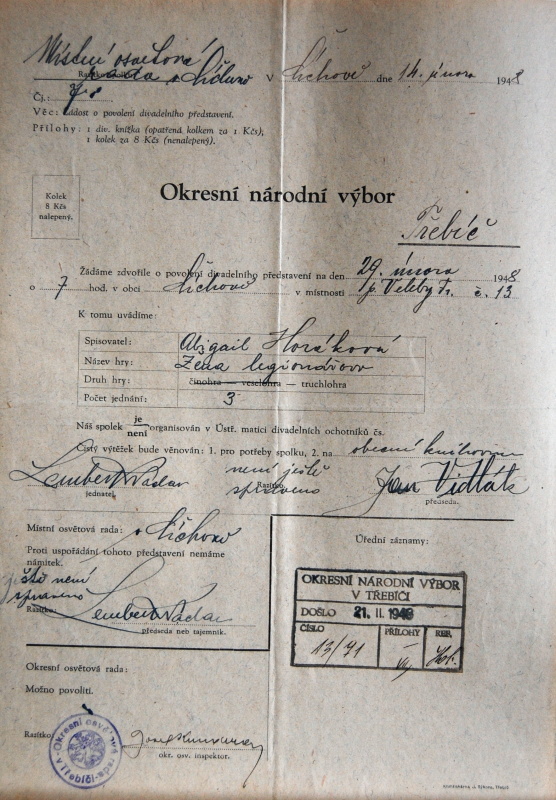 Místní osvětová
rada v Číchově V Číchově dne 14. února 1948
Čj.: 78
Věc: Žádost o povolení divadelního představení.
Přílohy: 1 div. knížka (opatřená kolkem za 1 Kčs);
1 kolek za 8 Kčs (nenalepený).
Kolek
8 Kčs
nalepený.
Okresní národní výbor
Třebíč
Žádáme zdvořile o povolení divadelního představení na den 29. února 1948
o 7 hod. v obci Číchov v místnosti p. Veleby Fr. č. 13
K tomu uvádíme:
Spisovatel: Abigail Horáková
Název hry: Žena legionářova
Druh hry: činohra — veselohra — truchlohra
Počet jednání: 3
Náš spolek je
není organisován v Ústř. matici divadelních ochotníků čs.
Čistý výtěžek bude věnován: 1. pro potřeby spolku, 2. na obecní knihovnu
Lembert Václav
jednatel.
není ještě
Razítko.
spraveno
Jan Vidlák
předseda.
Místní osvětová rada: v Číchově
Proti uspořádání tohoto představení nemáme
námitek.
ještě není
spraveno
Razítko:
Lembert Václav
předseda neb tajemník.
Úřední záznamy:
OKRESNÍ NÁRODNÍ VÝBOR
V TŘEBÍČI
DOŠLO 21. II. 1948
ČÍSLO PŘÍLOHY REF.
13/71
Okresní osvětová rada:
Možno povoliti.
Razítko:
Okresní osvětová rada v Třebíči
okr. osv. inspektor.